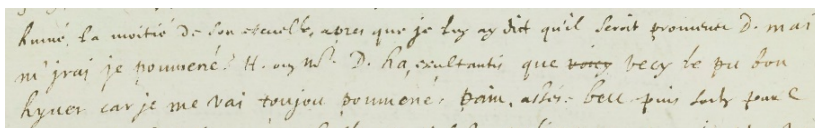 humé, la moitié de son escuelle, apres que je luy ay dict qu'il seroit proumené D. mai
m'jrai je poumené? H. ouy Mr. D. ha, exultantis que voicy vecy le pu bon
hyver car je me vai toujou poumené. pain, assés. beu puis sorty par